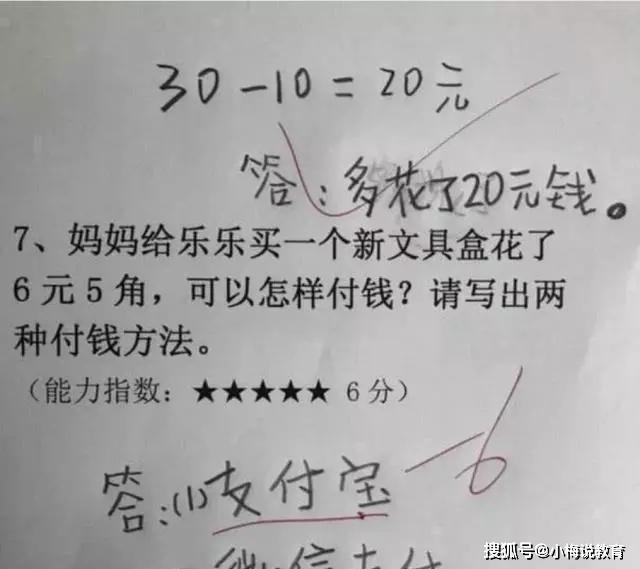 30-10=20元
答:多花了20元钱。
7、妈妈给乐乐买一个新文具盒花了
6元5角，可以怎样付钱？请写出两
种付钱方法。
（能力指数：★★★★★ 6分）
-6
答:(1)支付宝
微信支付
搜狐号@小梅说教育